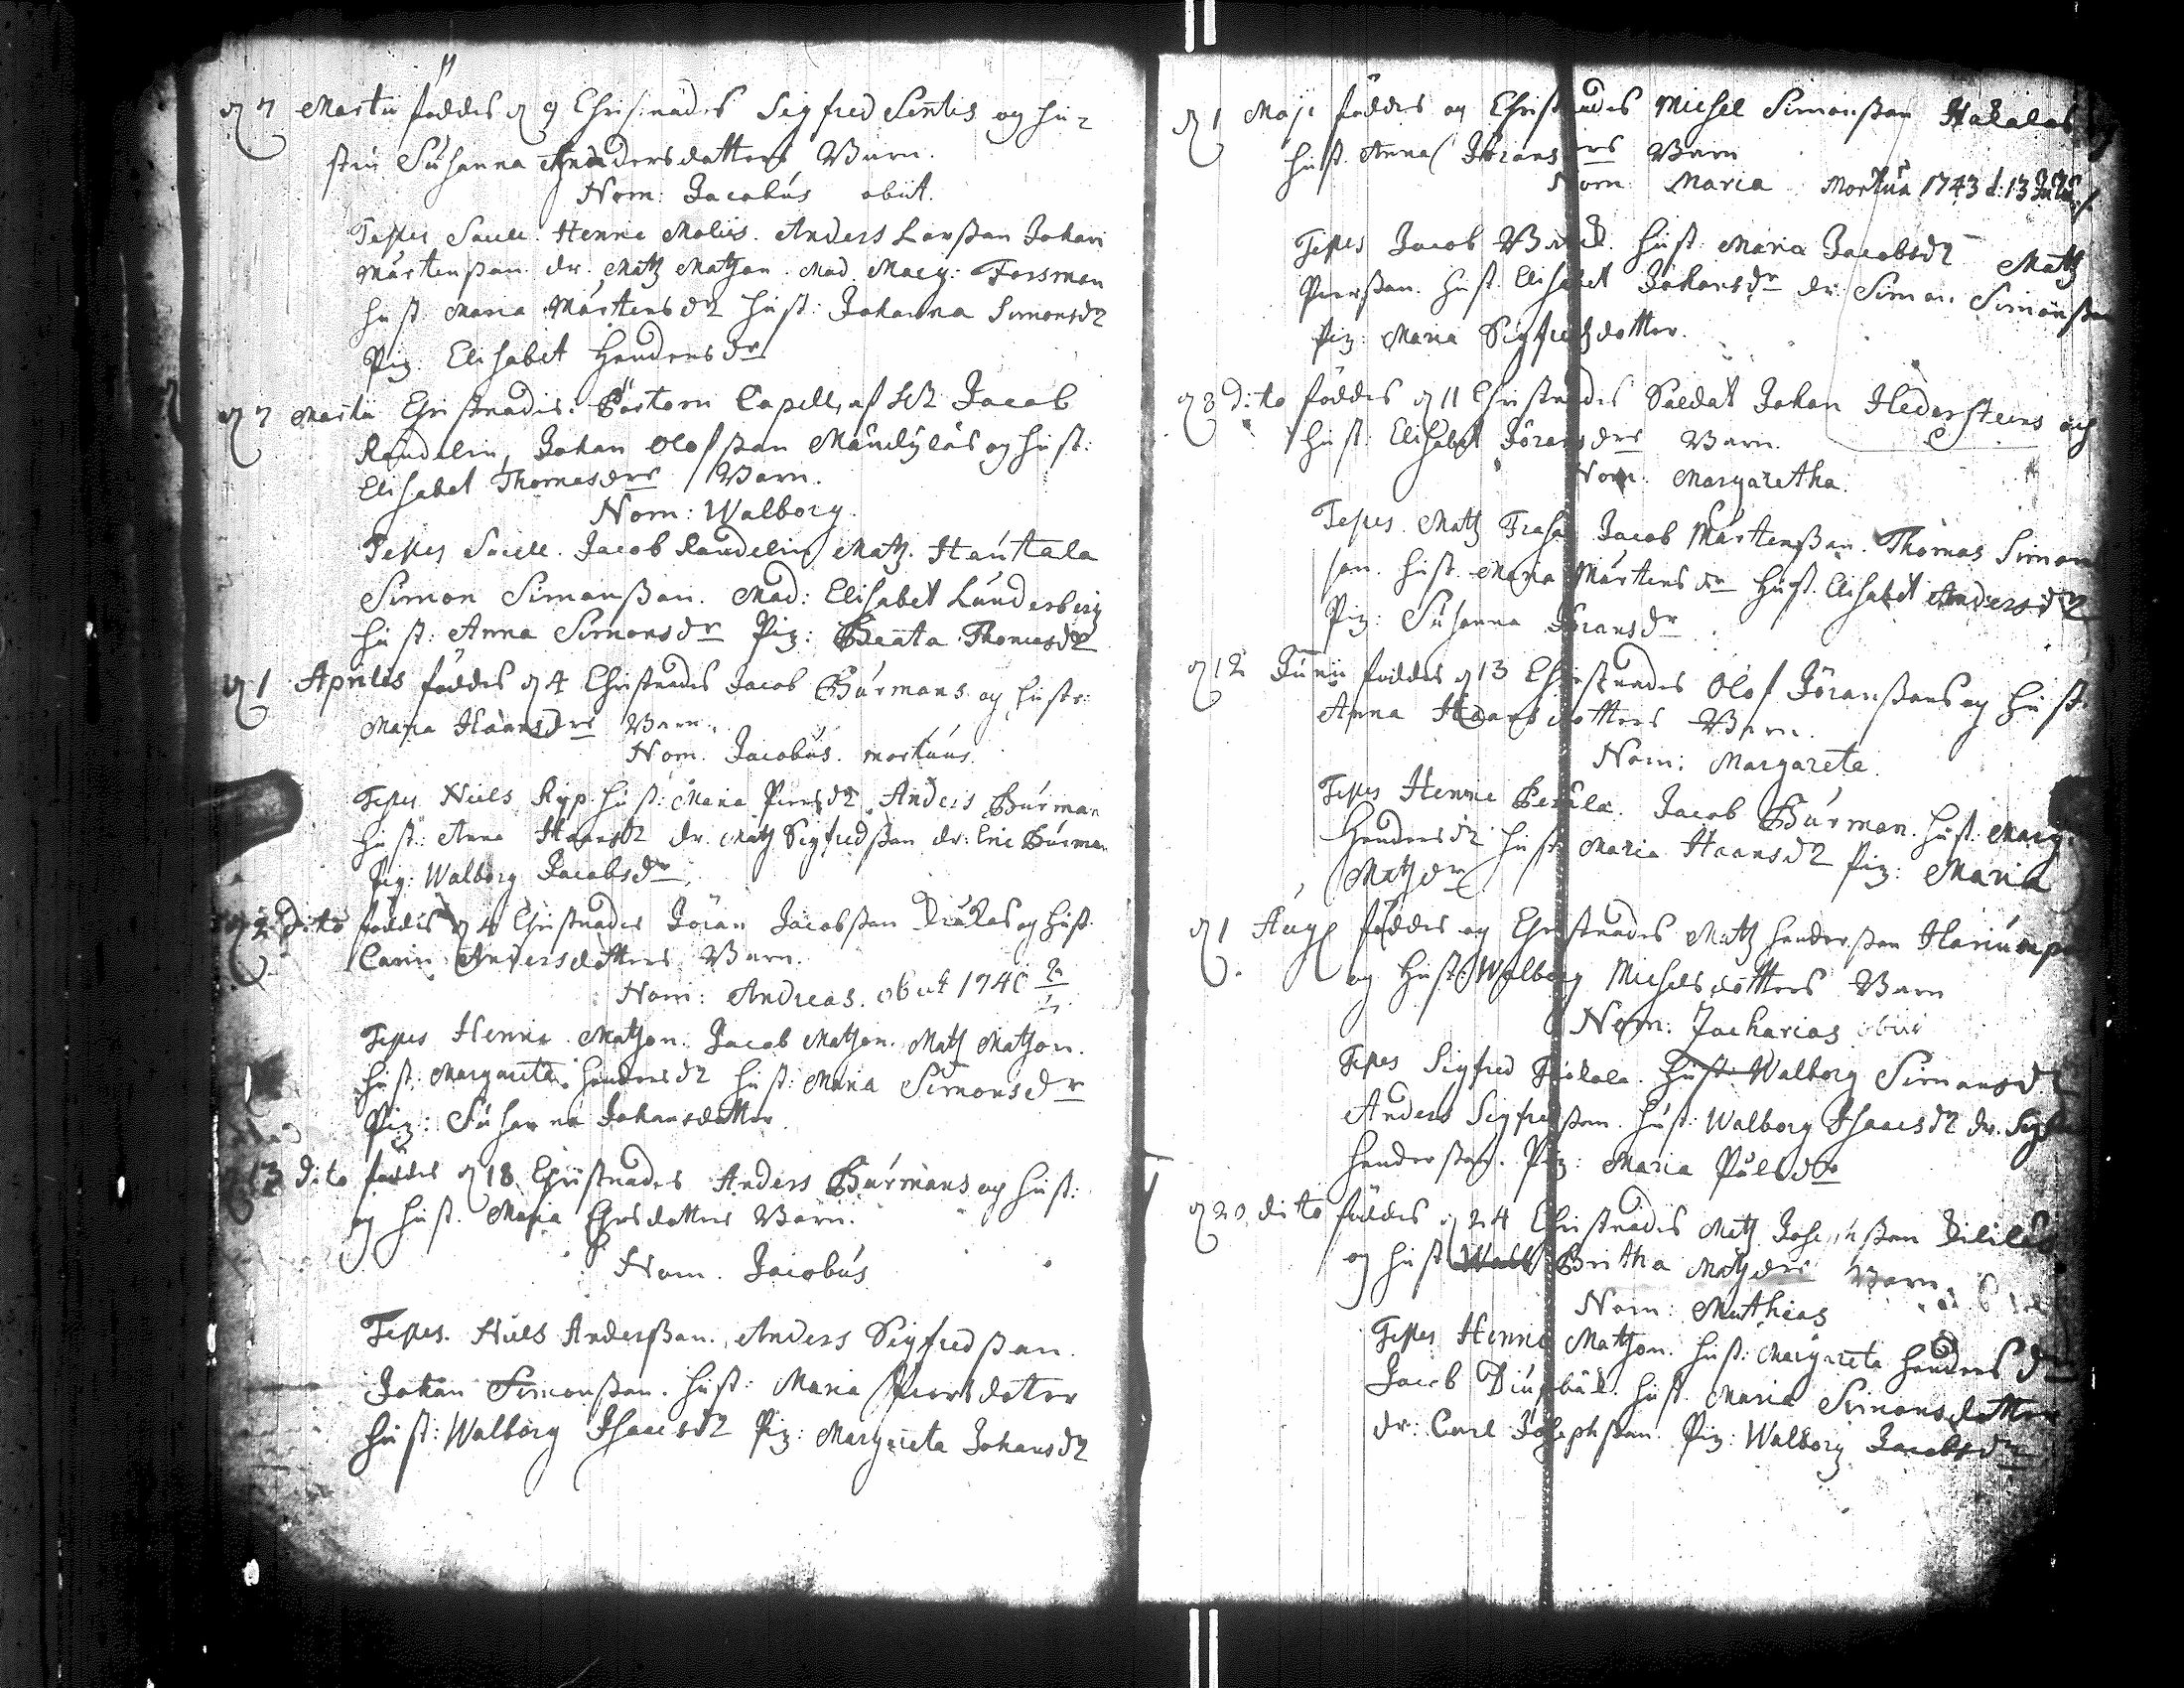 d 7 Martii föddes d 9 Christnades Sigfred Sentis og hu-
stru Susanna Andersdotters Barn.
Nom: Jacobus obiit.
Testes Henric Matz Anders Larssan Johan
Mårtenssan. dr. Matz Matzon. Mad. Marg: Forsman
hust. Maria Mårtensdr hust: Johanna Simonsdr
Pig. Elisabet Hendersdr
d 7 Martii Christnades. Capell. af Hr Jacob
Randelin, Johan Olofssan og hust:
Elisabet Thomasdrs Barn.
Nom: Walborg.
Testes Jacob Randelin Matz. Hautala
Simon Simonssan. Mad: Elisabet Lunderberg
hust: Anna Simonsdr Pig: Beata Thomasdr
d 1 Aprilis föddes d 4 Christnades Jacob Burmans og hustr:
Maria Haansdrs Barn.
Nom. Jacobus. mortuus.
Testes Niels Ryp. hust: Maria Piersdr Anders Burman
hust: Anna Haansdr dr. Matz Sigfredssan dr: Eric Burman
Pig: Walborg Jacobsdr
d 2 dito föddes d 4 Christnades Jöran Jacobssan og hust.
Carin Andersdotters Barn.
Nom: Andreas. obiit 1740
Testes Henric Matzon. Jacob Matzon. Matz Matzon.
hust: Margareta Hendersdr hust: Maria Simonsdr
Pig: Susanna Johansdotter
d 13 dito föddes d 18 Christnades Anders Burmans og hust:
og hust. Maria Barn.
Nom. Jacobus
Testes. Niels Anderssan. Anders Sigfredssan.
Johan Simonssan. hust: Maria Piersdoter
hust: Walborg Isaacsdr Pig: Margareta Johansdr
d 1 Maji föddes og Christnades Michel Simonssan Hakalas
hust. Anna Jörans Barn
Nom Maria Mortua 1743 d: 13 Julii
Testes Jacob hust: Maria Jacobsdr Matz
Pierssan. hust. Elisabet Johansdr dr: Simon Simonssan
Pig: Maria Sigfredsdotter.
d 8 dito föddes d 11 Christnades Soldat Johan Hedersteens och
hust: Elisabet Jöransdrs Barn.
Nom. Margaretha.
Testes. Matz Jacob Mårtenssan. Thomas Simon
san. hust. Maria Mårtensdr hust. Elisabet Andersdr
Pig: Susanna Jöransdr
d 12 Junii föddes d 13 Christnades Olof Jöranssans og hust.
Anna Haansdotters Barn.
Nom: Margareta.
Testes Henric Jacob Burman. hust: Marg.
Hendersdr hust. Maria Haansdr Pig: Maria
Matzdr
d 1 Aug föddes og Christnades Matz Henderssan
og hust: Walborg Michelsdotters Barn
Nom: Zacharias obiit
Testes Sigfred hust. Walborg Simonsdr
Anders Sigfredssan. hust: Walborg Isaacsdr dr.
Henderssan. Pig: Maria Pålsdr
d 20 dito föddes d 24 Christnades Matz Josephssan
og hust Walb Britha Matzdrs Barn.
Nom: Mathias
Testes Henric Matzon. hust: Margareta Henders dr
Jacob hust. Maria Simonsdotter
dr: Carl Josephssan. Pig: Walborg Jacobsdr